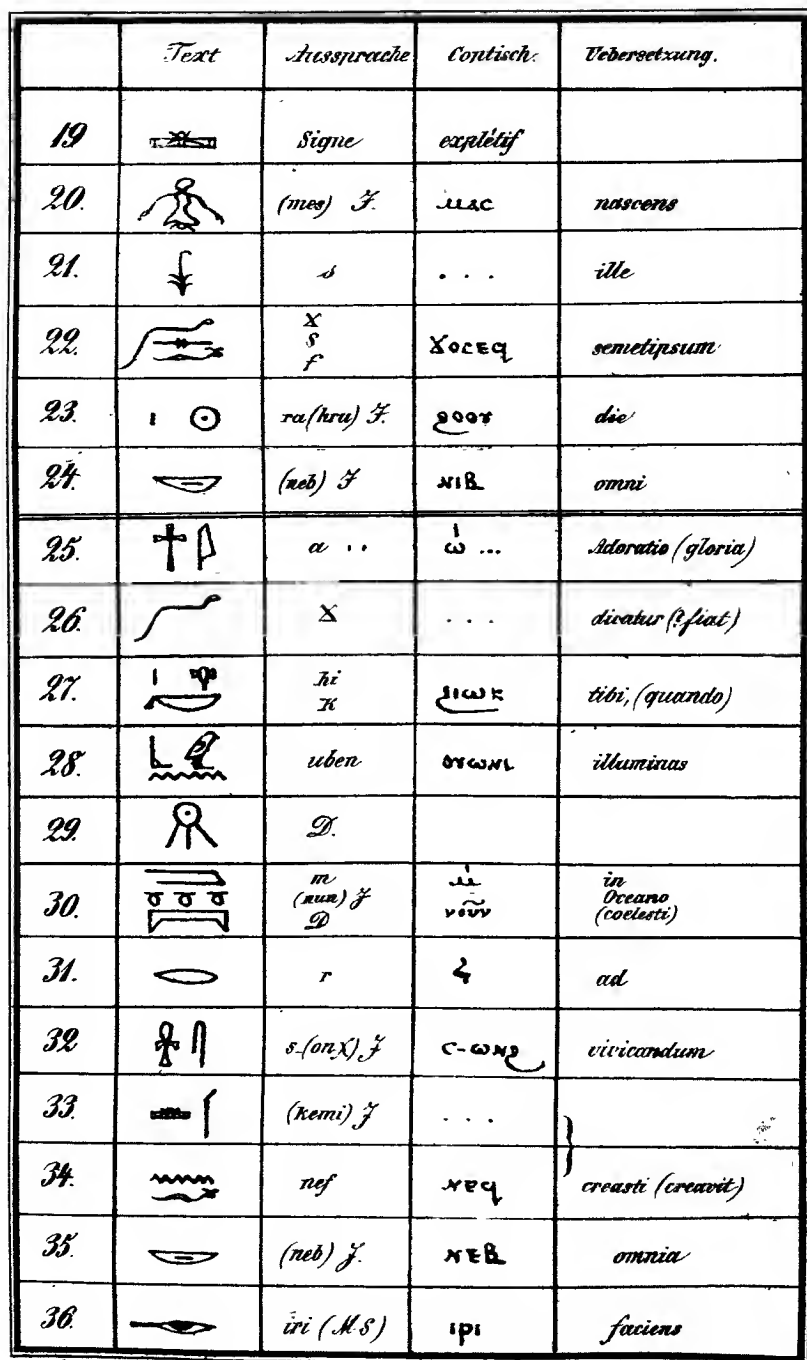 Text Aussprache Coptisch. Uebersetzung.
19 Signe explétif
20. (mes) J. ⲙⲁⲥ nascens
21. s . . . ille
22. X ϫⲟⲥⲉϥ semetipsum
s
f
23. ra (hru) J. ϩⲟⲟⲩ die
24. (neb) J ⲛⲓⲃ omni
25. a .. ⲱ̇ ... Adoratio (gloria)
26. X . . . dicatur (? fiat)
27. hi ϩⲓⲱⲕ tibi, (quando)
K
28. uben ⲟⲩⲱⲛⲓ illuminas
29. D.
30. m ⲙ̇ in
(nun) J νοῦν Oceano
D (coelesti)
31. r ad
32 s-(onχ) J ⲥ-ⲱⲛϩ vivicandum
33. (kemi) J . . .
34. nef ⲛⲉϥ creasti (creavit)
35. (neb) J. ⲛⲉⲃ omnia
36. iri (M.S) ⲓⲣⲓ faciens